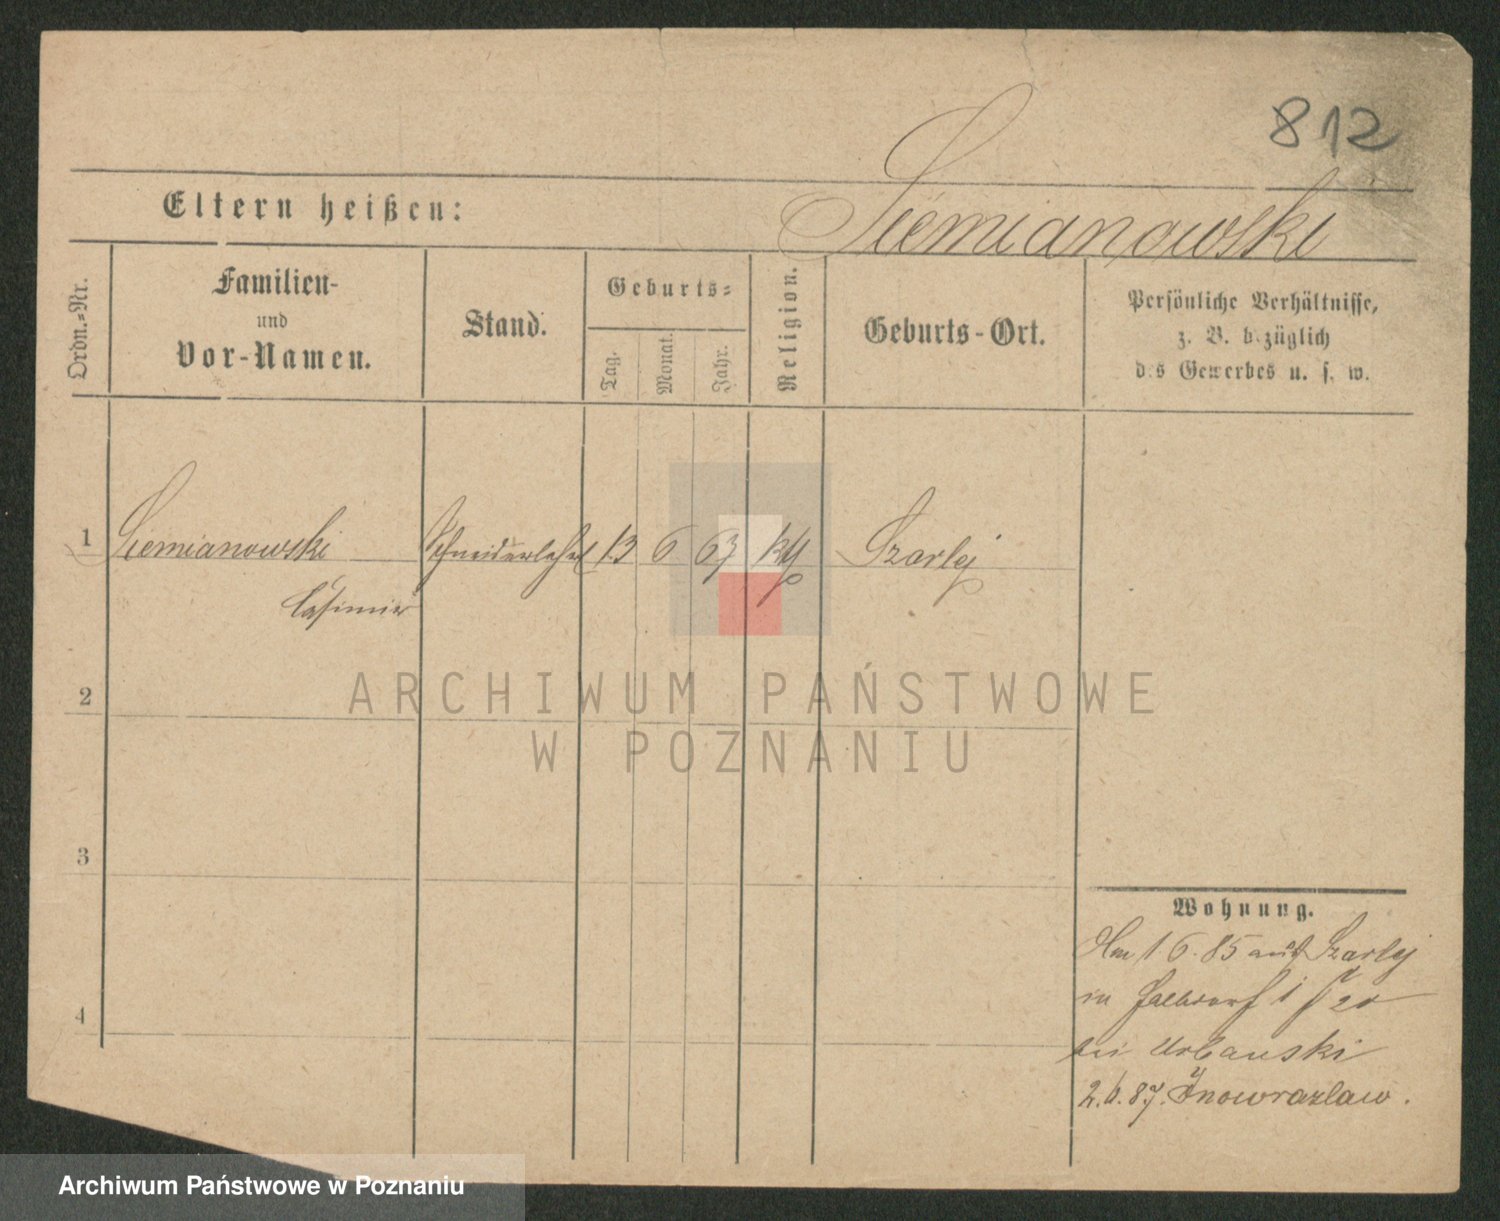 812
Eltern heißen:
Siemianowski
Ordn.-Nr.
Familien-
und
Vor-Namen.
Stand.
Geburts-
Tag.
Monat.
Jahr.
Religion.
Geburts-Ort.
Persönliche Verhältnisse,
z. B. bezüglich
des Gewerbes u. s. w.
1 Siemianowski Schneiderlehrl 13 6 63 Szarlej
Casimir
2
3
4
ARCHIWUM PAŃSTWOWE
W POZNANIU
Wohnung.
Am 1 6. 85 aus Szarlej
in
bei Urbanski
2.6.87. Inowrazlaw.
Archiwum Państwowe w Poznaniu